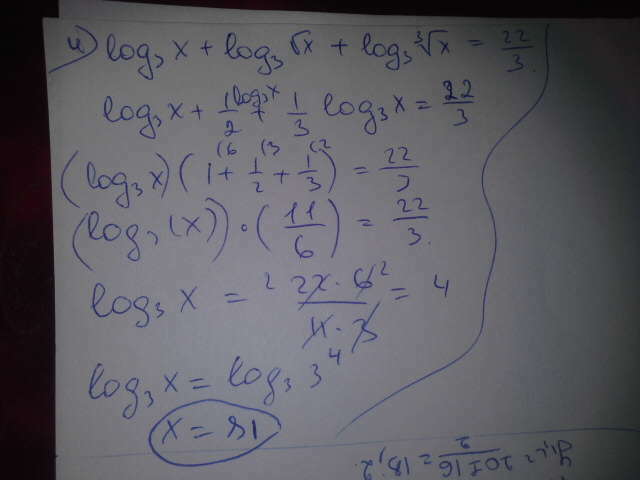 u) log₃ x + log₃ √x + log₃ ∛x = 22/3.
log₃ x + 1/2 log₃ x + 1/3 log₃ x = 22/3
(log₃ x) (1 + 1/2 + 1/3) = 22/3
(log₃ (x)) · (11/6) = 22/3.
log₃ x = 22 · 6 / 11 · 3 = 4
log₃ x = log₃ 3⁴
x = 81